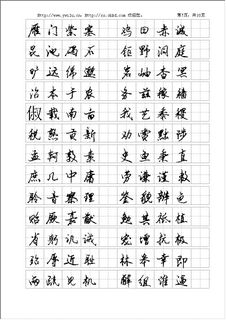 雁门紫塞 鸡田赤城
昆池碣石 钜野洞庭
旷远绵邈 岩岫杳冥
治本于农 务兹稼穑
俶载南亩 我艺黍稷
税熟贡新 劝赏黜陟
孟轲敦素 史鱼秉直
庶几中庸 劳谦谨敕
聆音察理 鉴貌辨色
贻厥嘉猷 勉其祗植
省躬讥诫 宠增抗极
殆辱近耻 林皋幸即
两疏见机 解组谁逼